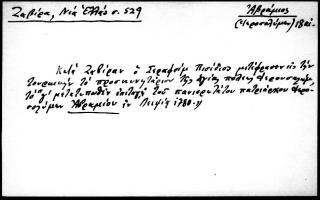 Ζαβίρα, Νέα Ἑλλάς σ. 529
Ἀβράμιος
(Ἱεροσολύμων) 18αι.
Κατὰ Ζαβίραν ὁ Σεραφεὶμ Πισίδιος μετέφρασεν εἰς τὴν
Τουρκικὴν τὸ προσκυνητάριον τῆς ἁγίας πόλεως Ἱερουσαλὴμ
μετατυπωθὲν ἐπιταγῇ τοῦ πανιερωτάτου πατριάρχου Ἱερο-
σολύμων Ἀβραμίου ἐν Λειψίᾳ 1780.»